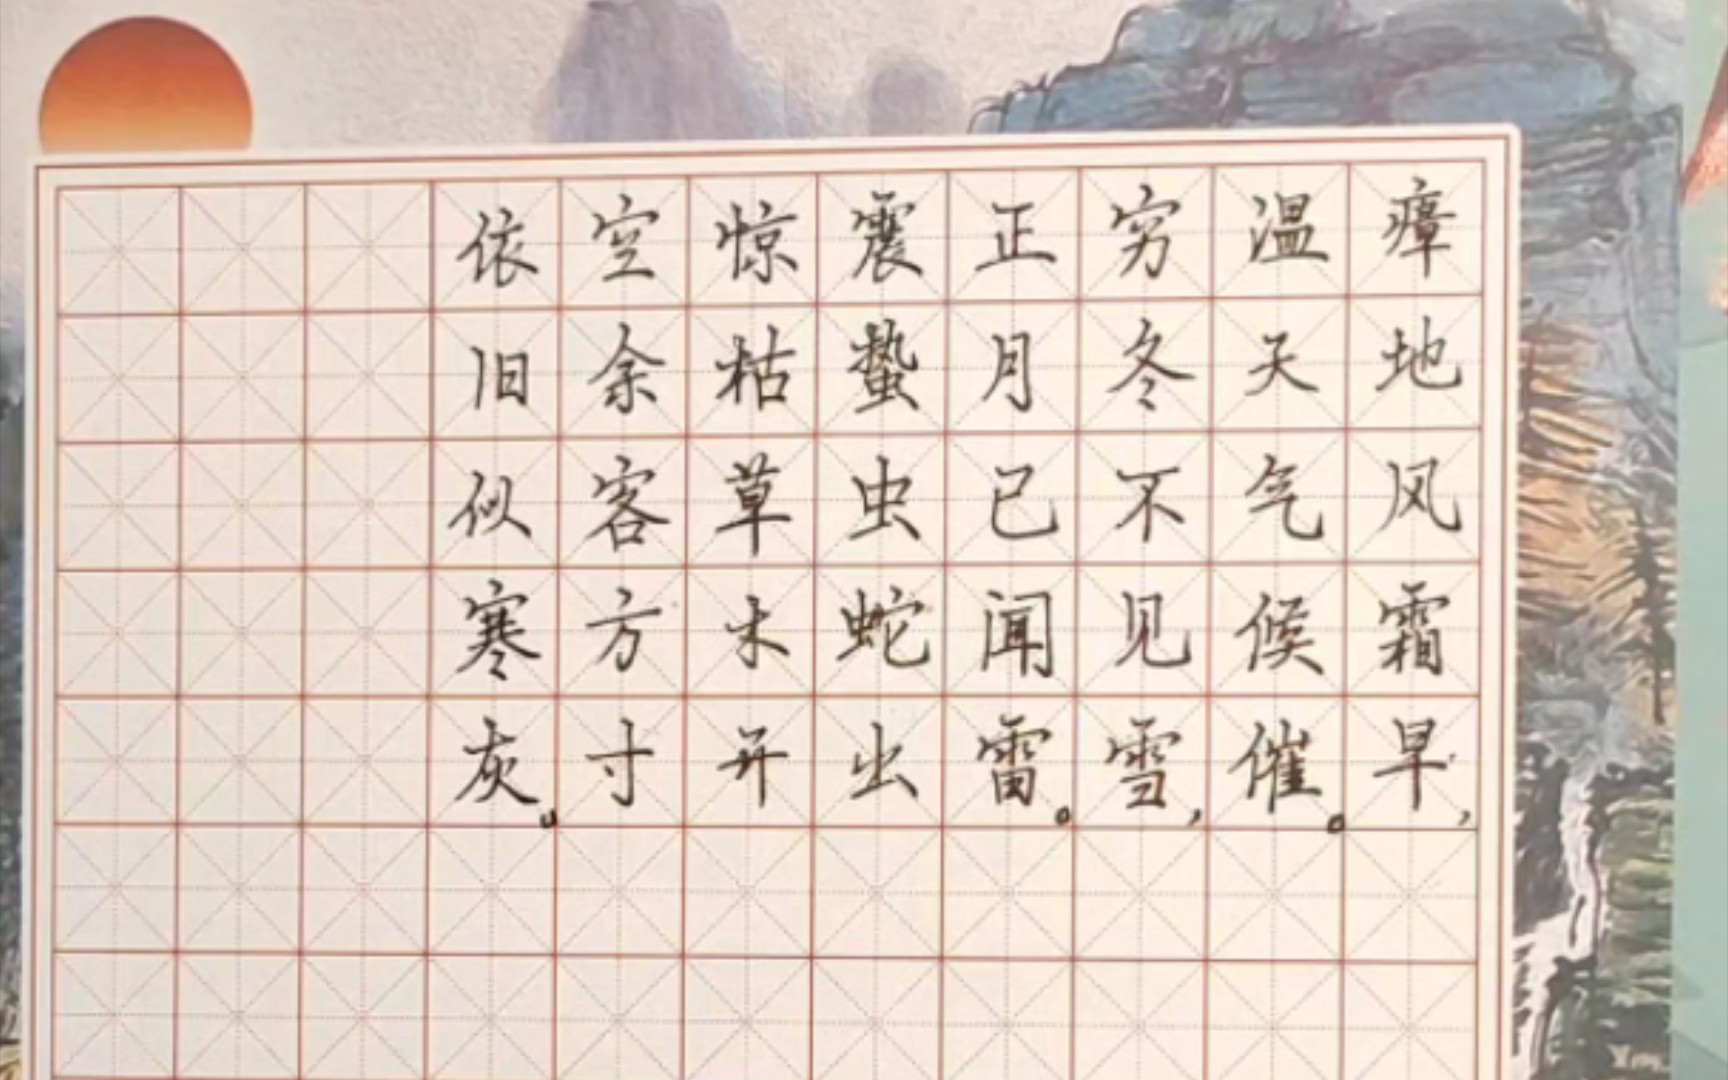 瘴地风霜早，
温天气候催。
穷冬不见雪，
正月已闻雷。
震蛰虫蛇出
惊枯草木开
空余客方寸
依旧似寒灰。